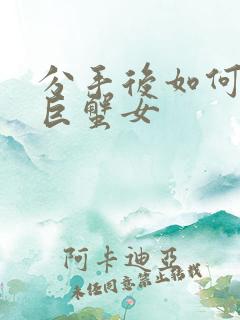 分手後如何
巨蟹女
阿卡迪亞
未经同意禁止转载